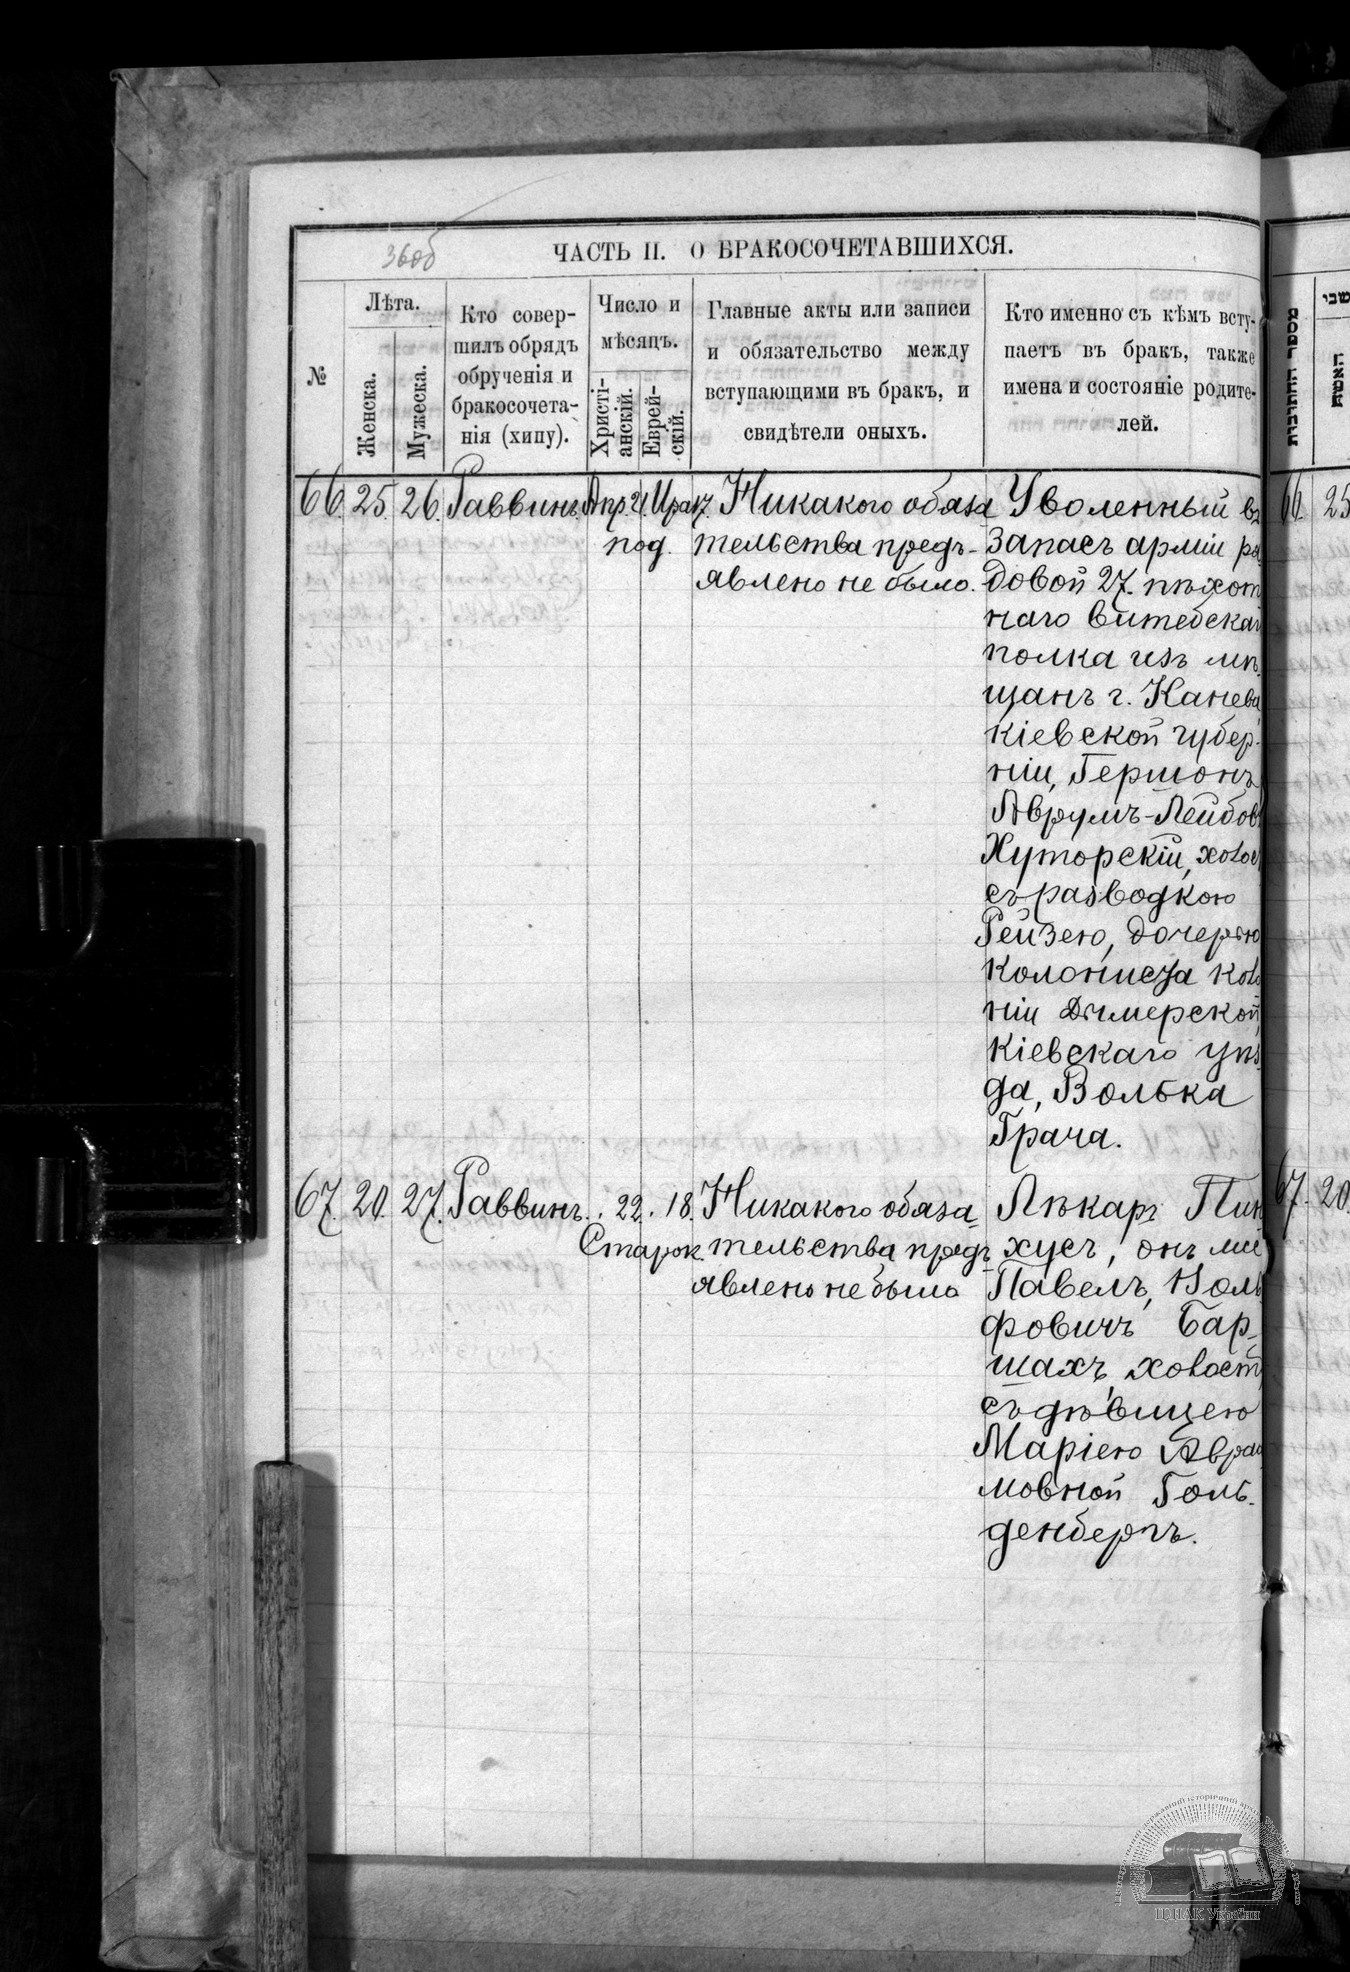 36об
ЧАСТЬ II. О БРАКОСОЧЕТАВШИХСЯ.
№
Лѣта.
Женска.
Мужеска.
Кто совер-
шилъ обрядъ
обрученія и
бракосочета-
нія (хипу).
Число и
мѣсяцъ.
Христі-
анскій.
Еврей-
скій.
Главные акты или записи
и обязательство между
вступающими въ бракъ, и
свидѣтели оныхъ.
Кто именно съ кѣмъ всту-
паетъ въ бракъ, также
имена и состояніе родите-
лей.
66. 25. 26. Раввинъ. Апр. 21.
под.
Никакого обяза
тельства предъ-
явлено не было.
Уволенный въ
запасъ арміи ря
довой 27. пѣхот
наго Витебскаго
полка изъ мѣ
щанъ г. Канева
Кіевской губер-
ніи, Гершонъ
Аврумъ-Лейбовъ
Хуторскій, холос
съ разводкою
Рейзею, дочерью
колониста коло
ніи Дымерской,
Кіевскаго уѣз
да, Волька
Грача.
67. 20. 27. Раввинъ. 22. 18.
Старок.
Никакого обяза
тельства предъ
явлено не было
Лѣкаръ Пин
хусъ, онъ же
Павелъ, Воль
фовичъ Бар-
шахъ, холост
съ дѣвицею
Маріею Авра
мовной Голь-
денбергъ.
66. 25
67. 20.
מספר החתונות
האשה
ЦДІАК України